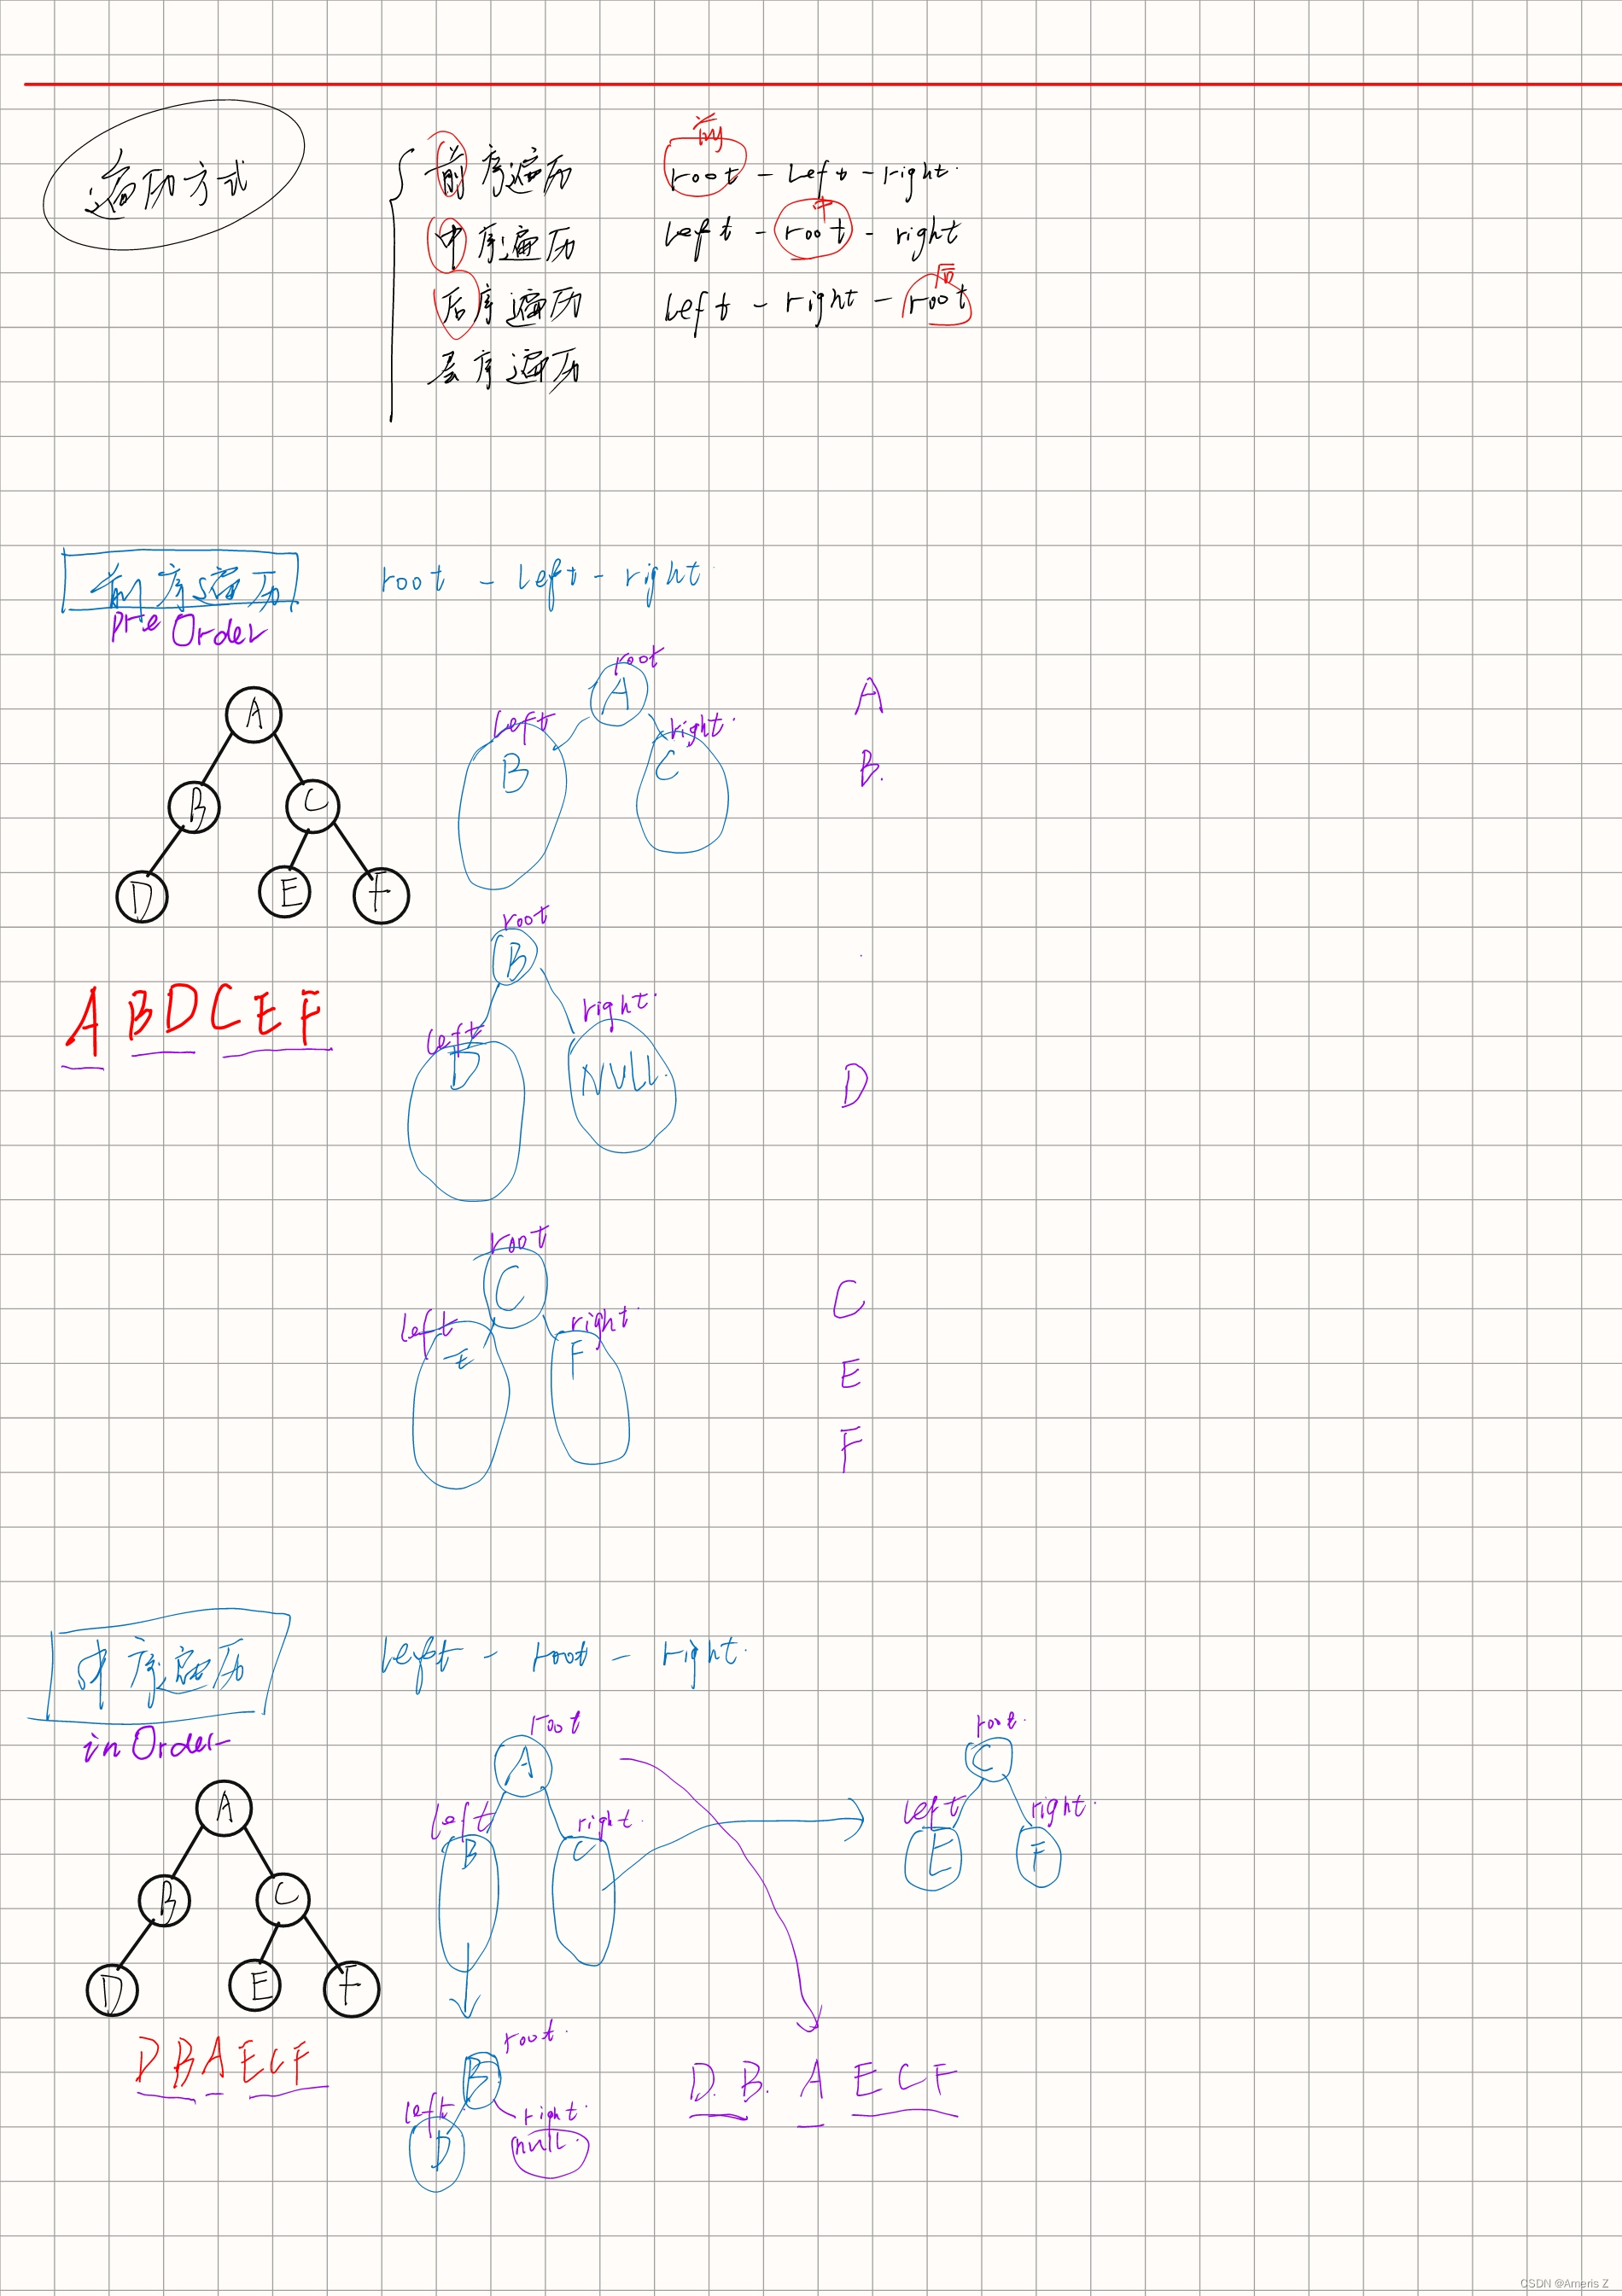 遍历方式
前
前序遍历 root - left - right.
中
中序遍历 left - root - right
后
后序遍历 left - right - root
层序遍历
前序遍历 root - left - right.
pre Order
root
A
A
A
left right.
B C
B C
B.
D E F
root
B
A B D C E F
right.
left
D NULL.
D
root
C
C
left right.
E F
E
F
中序遍历 left - root - right.
in Order
root
A
root.
C
A
left right.
B C
left right.
E F
B C
D E F
root.
B
D B A E C F
D. B. A E C F
left right.
D null.
CSDN @Ameris Z